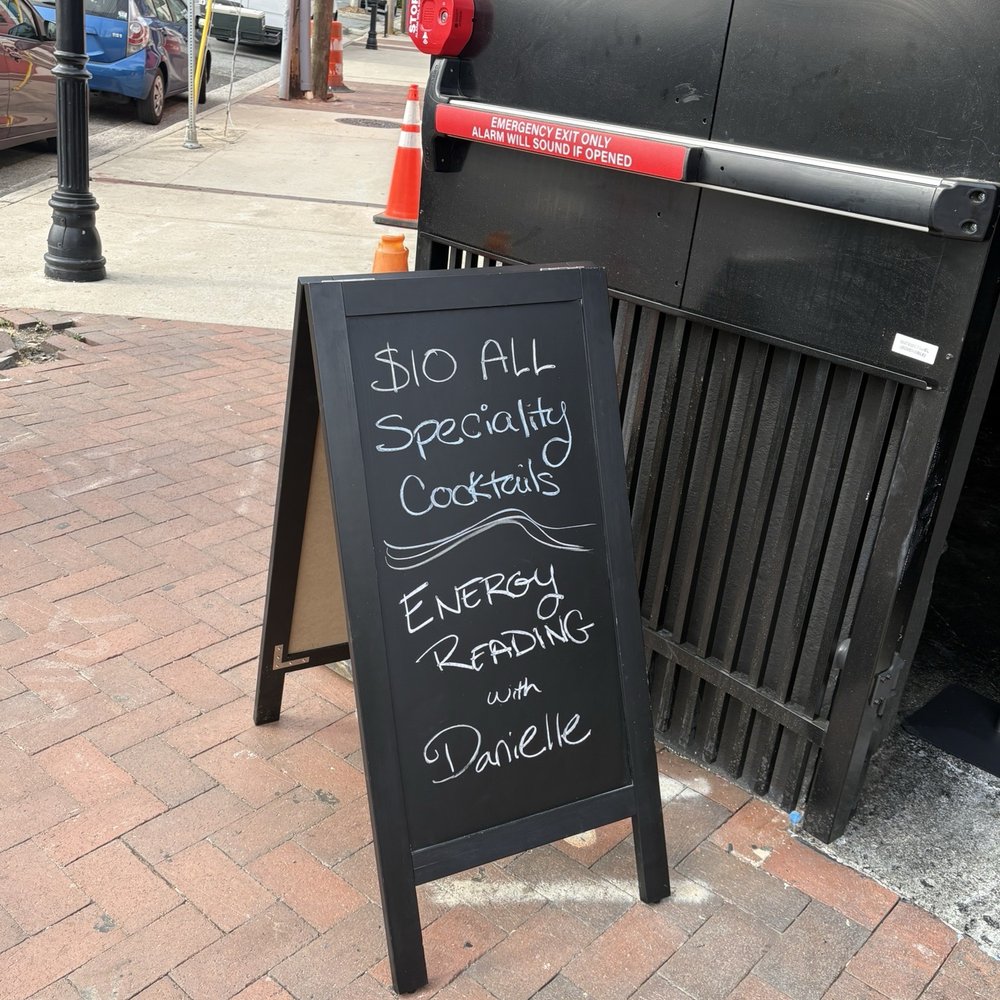 STOP
EMERGENCY EXIT ONLY
ALARM WILL SOUND IF OPENED
$10 ALL
Speciality
Cocktails
ENERGY
READING
with
Danielle